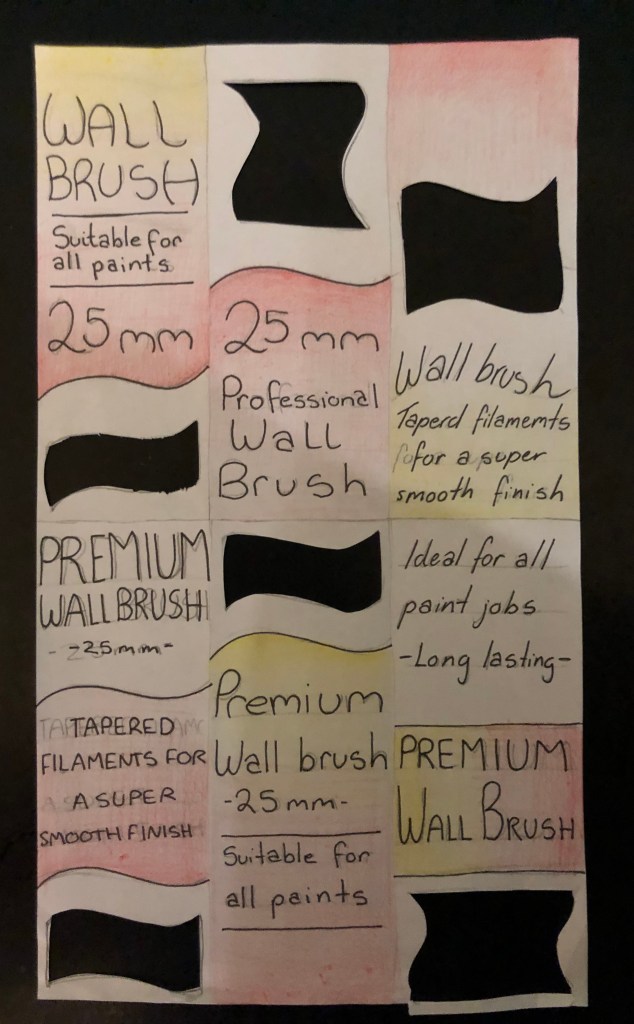 WALL
BRUSH
Suitable for
all paints
25mm
25mm
Professional
Wall
Brush
Wall brush
Taperd filamemts
for a super
smooth finish
PREMIUM
WALL BRUSH
-25mm-
TAPERED
FILAMENTS FOR
A SUPER
SMOOTH FINISH
Premium
Wall brush
-25mm-
Suitable for
all paints
Ideal for all
paint jobs
-Long lasting-
PREMIUM
WALL BRUSH